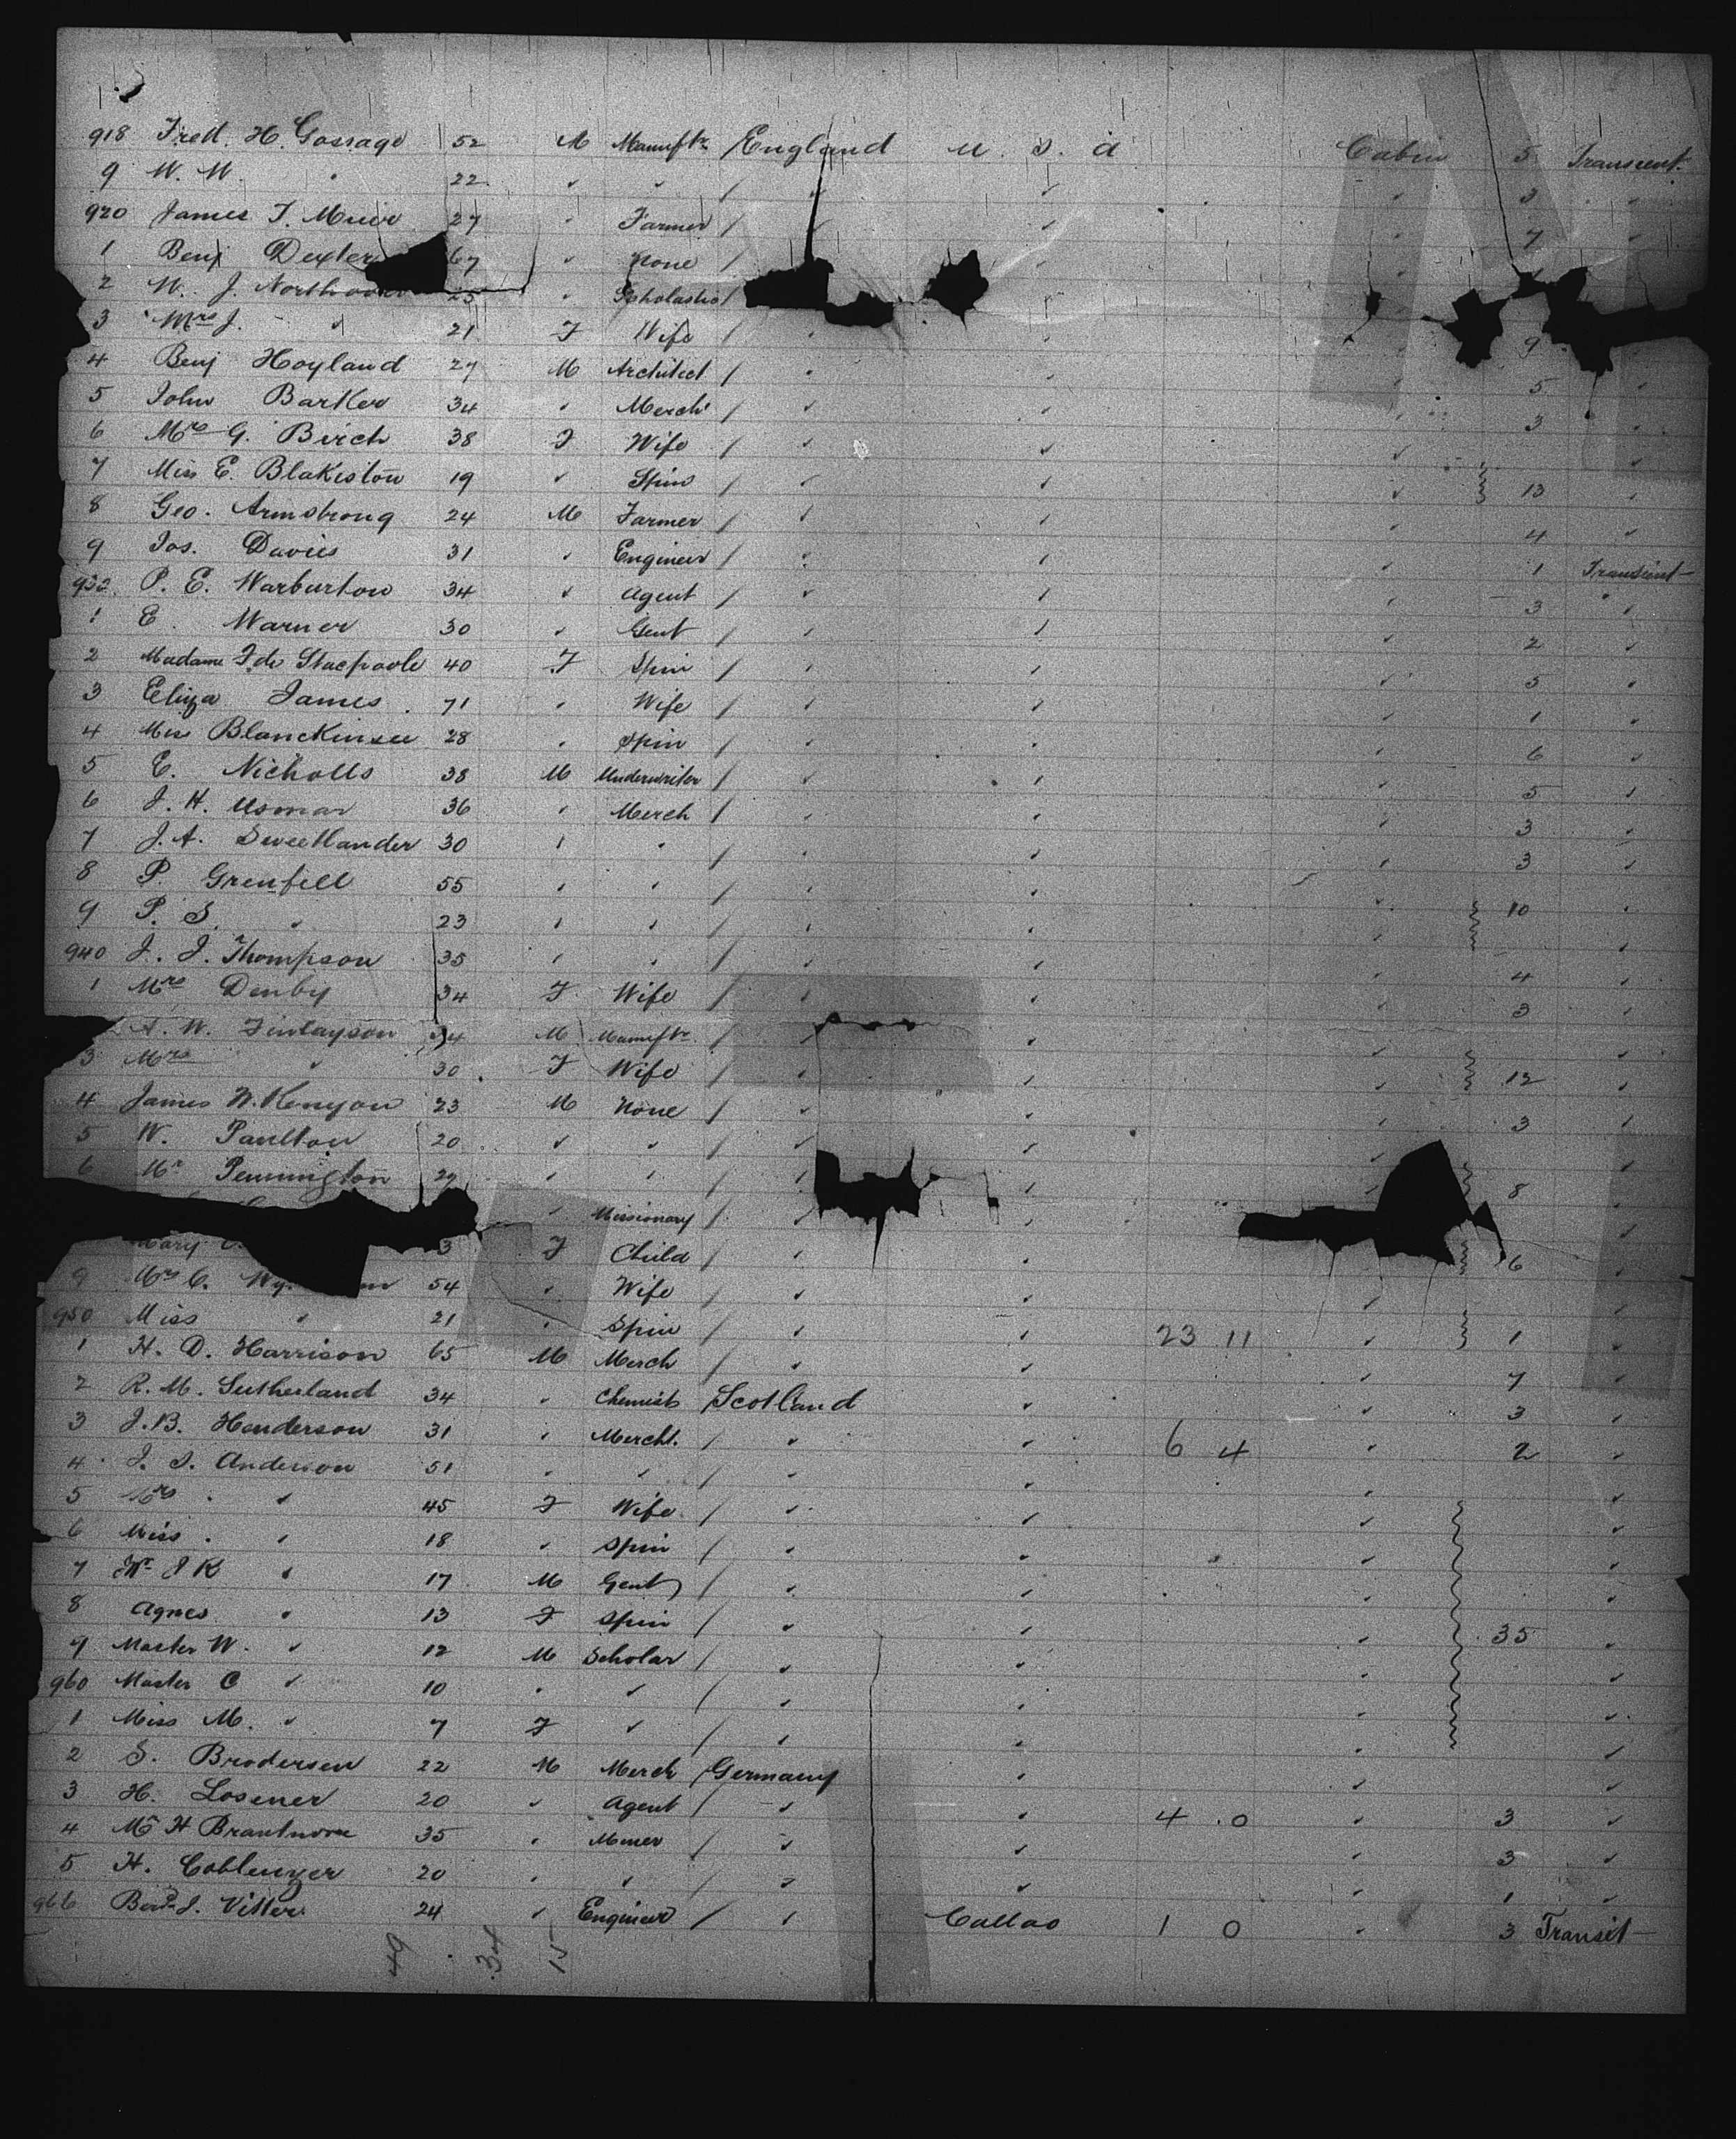 918 Fredk. H. Gossage 52 M Manuftr. England U. S. A Cabin 5 Transient
9 W. W. " 22 " " / " " " 3 "
920 James T. Muir 27 " Farmer / " " " 7 "
1 Benj Dexter 67 " None / "
2 W. J. 25 " Scholastic /
3 Mrs J. " 21 F Wife / " " " 9
4 Benj Hoyland 29 M Architect / " " " 5 "
5 John Barker 34 " Mercht / " " " 3 "
6 Mrs G. Birch 38 F Wife / " " " "
7 Miss E. Blakiston 19 " Spin / " " " 13 "
8 Geo. Armstrong 24 M Farmer / " " " 4 "
9 Jos. Davies 31 " Engineer / " " " 1 Transient
930 P. E. Warburton 34 " Agent / " " " 3 "
1 E. Warner 30 " Gent / " " " 2 "
2 Madame F. de Stacpoole 40 F Spin / " " " 5 "
3 Eliza James 71 " Wife / " " " 1 "
4 Miss Blanckinsee 28 " Spin / " " " 6 "
5 E. Nicholls 38 M Underwriter / " " " 5 "
6 J. H. Usmar 36 " Merch / " " " 3 "
7 J. A. Sweetlander 30 " " / " " " 3 "
8 P. Grenfell 55 " " / " " " 10 "
9 P. S. " 23 " " / " " " "
940 J. J. Thompson 35 " " / " " " 4 "
1 Mrs Denby 34 F Wife / " " " 3 "
A. W. Finlayson 34 M Manuftr. / " " " "
3 Mrs " 30 F Wife / " " " 12 "
4 James W. Kenyon 23 M None / " " " 3 "
5 W. Paulton 20 " " / " " " "
6 Mr Pennington 29 " " / " " " 8 "
" Missionary / " " "
Mary 3 F Child / " " 6 "
9 Mrs C. 54 " Wife / " " " "
950 Miss " 21 " Spin / " " 23 11 " 1 "
1 H. D. Harrison 65 M Merch / " " " 7 "
2 R. M. Sutherland 34 " Chemist Scotland " " 3 "
3 J. B. Henderson 31 " Mercht. / " " 6 4 " 2 "
4 J. S. Anderson 51 " " / " " " "
5 Mrs " 45 F Wife / " " " "
6 Miss " 18 " Spin / " " " "
7 J K " 17 M Gent / " " " "
8 Agnes " 13 F Spin / " " " 35 "
9 Master W. " 12 M Scholar / " " " "
960 Master C " 10 " " / " " " "
1 Miss M. " 7 F " / " " " "
2 S. Brodersen 22 M Merch Germany " " "
3 H. Losener 20 " Agent / " " 4 0 " 3 "
4 Mr H 35 " Miner / " " " 3 "
5 H. Coblenzer 20 " " / " " " 1 "
966 J. Vitter 24 " Engineer / " Callao 1 0 " 3 Transit
49 34 15